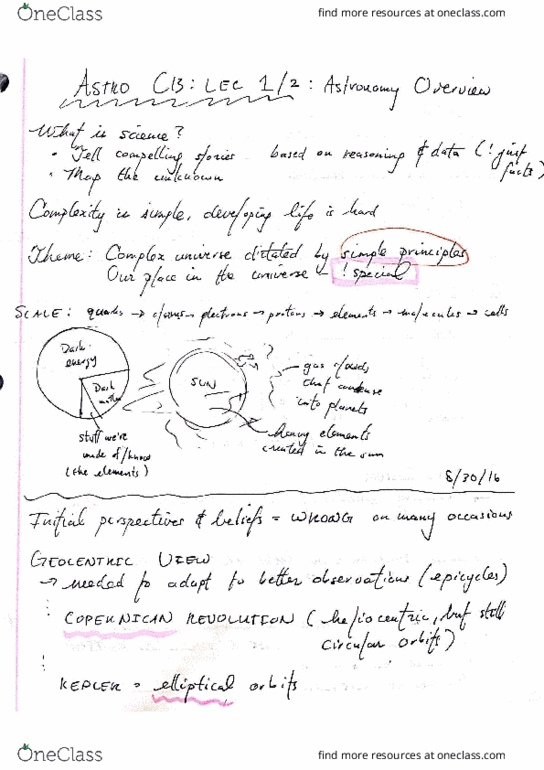 OneClass
find more resources at oneclass.com
ASTRO C13: LEC 1/2: Astronomy Overview
What is science?
• Tell compelling stories based on reasoning & data (! just facts)
• Map the unknown
Complexity is simple, developing life is hard
Theme: Complex universe dictated by simple principles
Our place in the universe - ! special
SCALE: quarks → → electrons → protons → elements → molecules → cells
Dark energy
Dark matter
stuff we're
made of/know
(the elements)
SUN
gas clouds
that condense
into planets
heavy elements
created in the sun
8/30/16
Initial perspectives & beliefs = WRONG on many occasions
GEOCENTRIC VIEW
→ needed to adapt to better observations (epicycles)
COPERNICAN REVOLUTION (heliocentric, but still
circular orbits)
KEPLER = elliptical orbits
OneClass
find more resources at oneclass.com